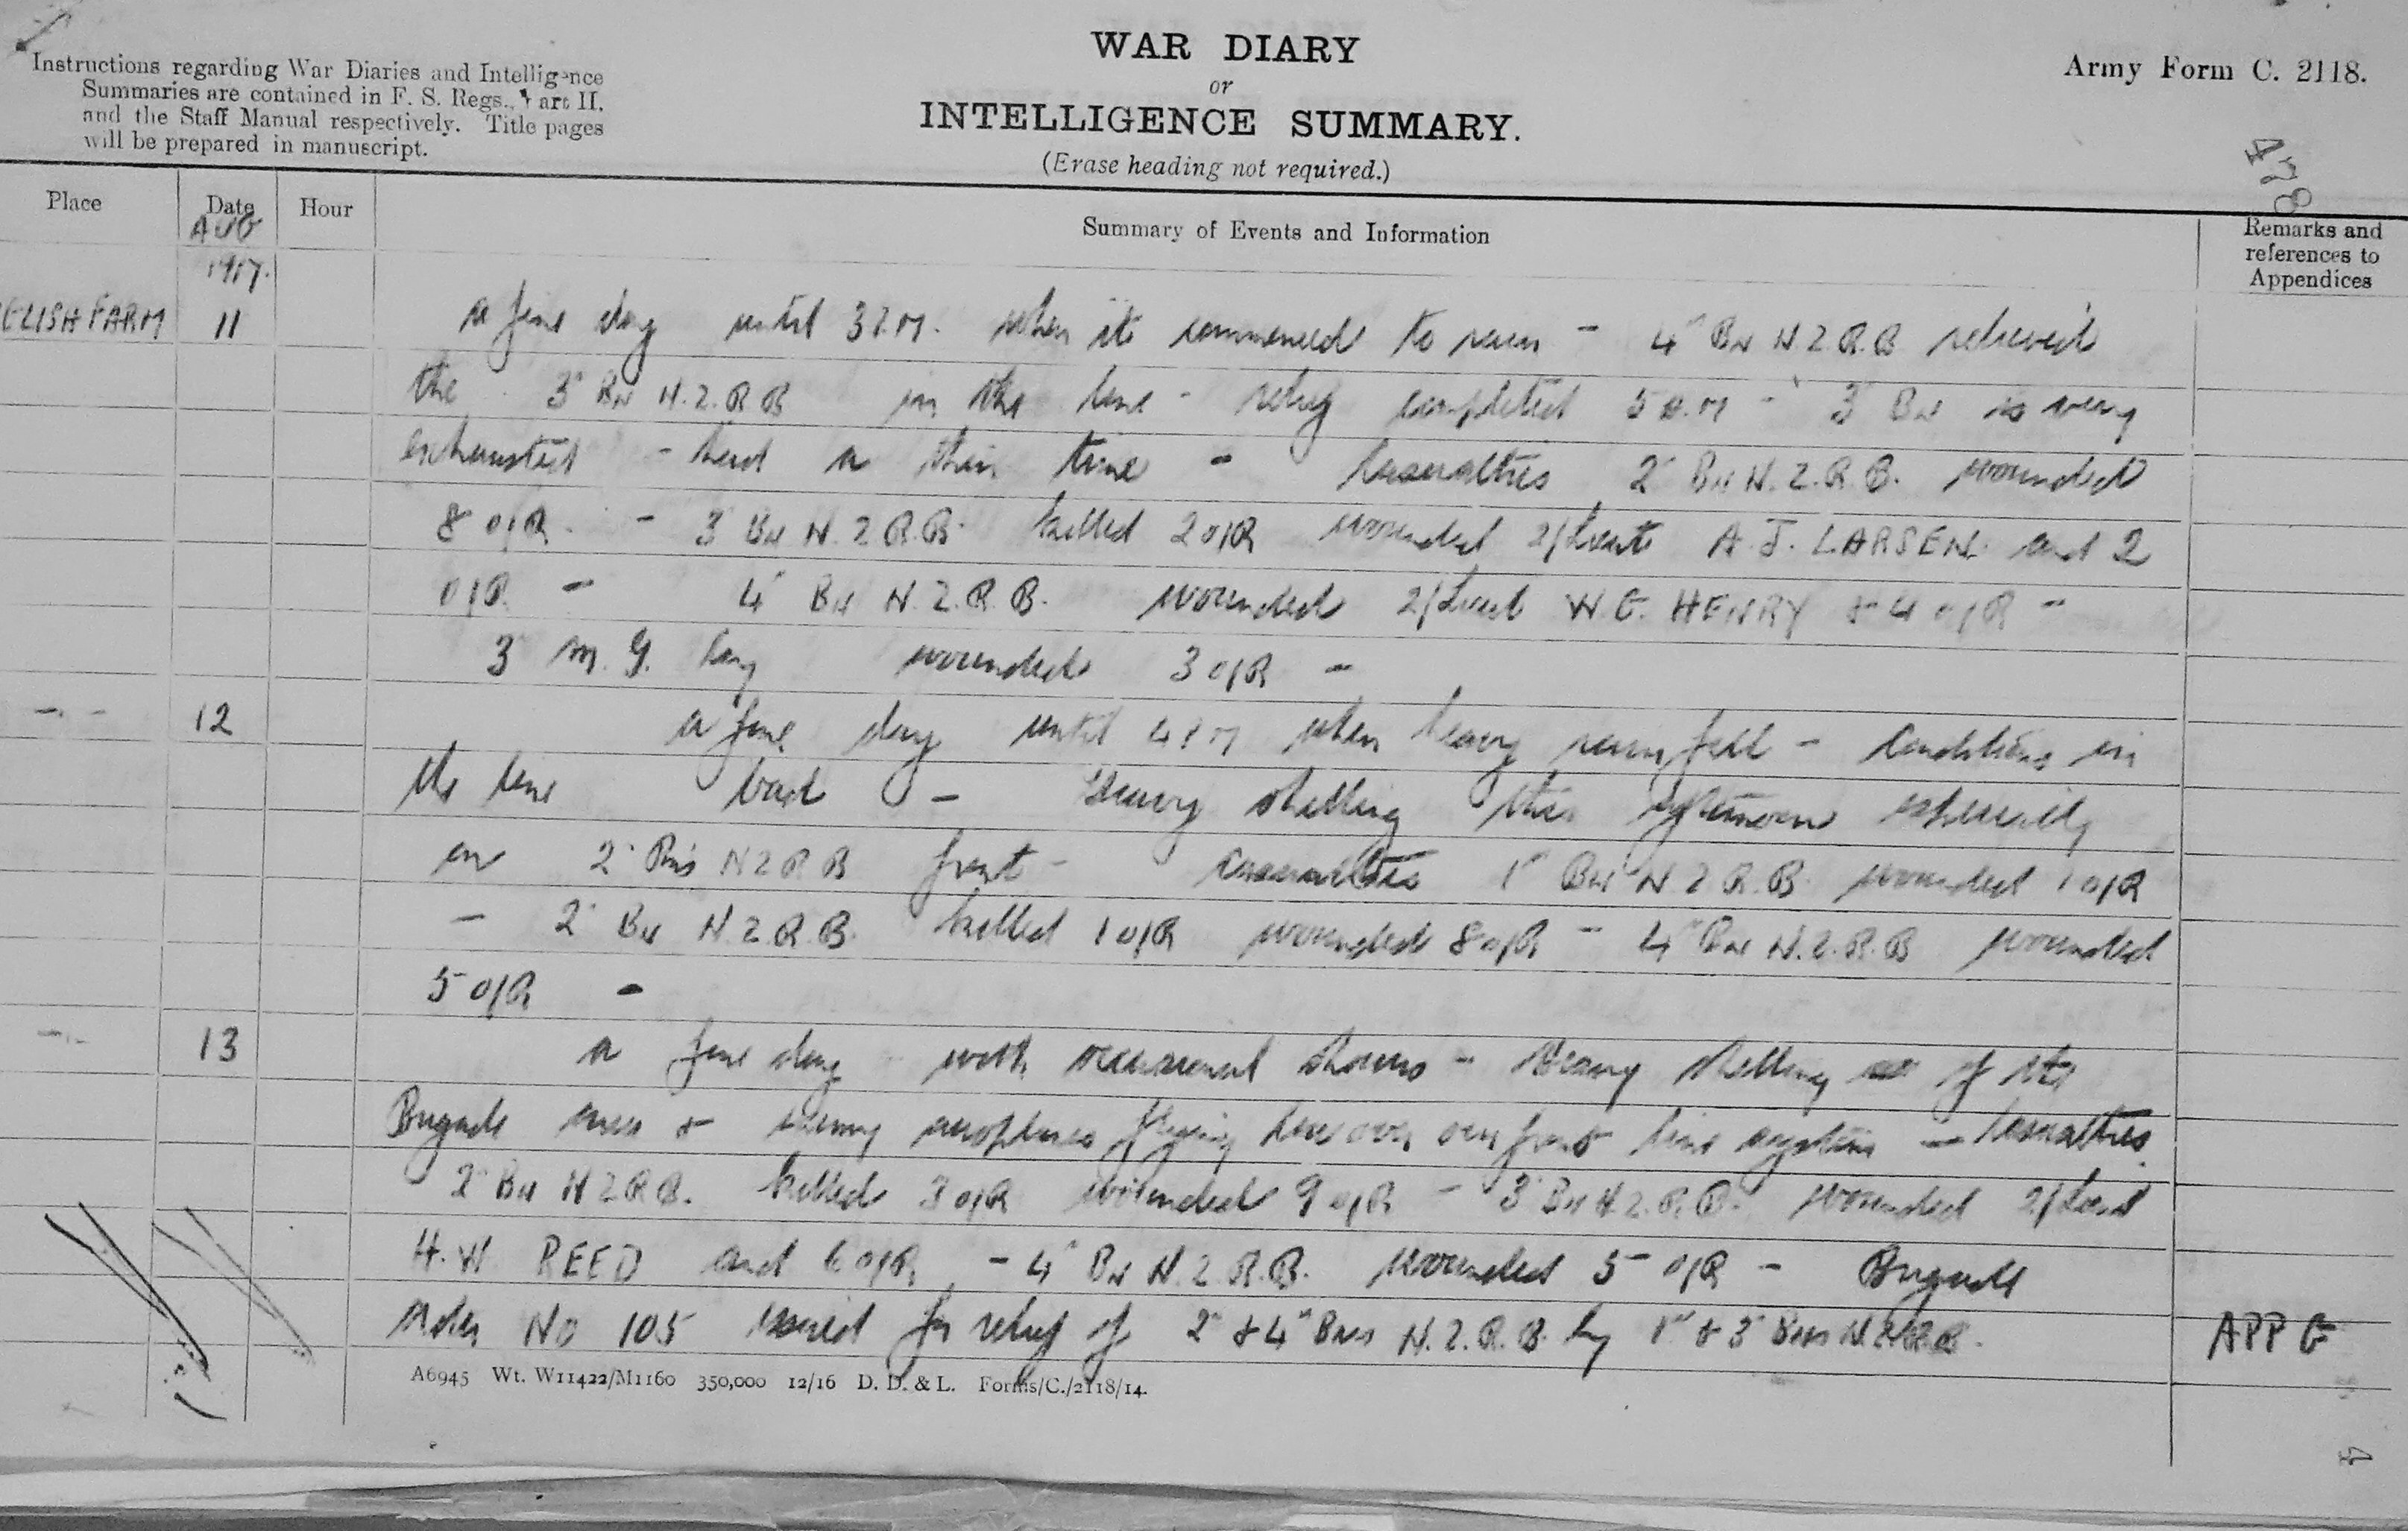 WAR DIARY
or
INTELLIGENCE SUMMARY.
(Erase heading not required.)
Army Form C. 2118.
478
Instructions regarding War Diaries and Intelligence
Summaries are contained in F. S. Regs., Part II.
and the Staff Manual respectively. Title pages
will be prepared in manuscript.
Place Date Hour Summary of Events and Information Remarks and
references to
Appendices
AUG
1917.
ELISH FARM 11 a fine day until 3 P.M. when it commenced to rain - 4" BN N.Z.R.B relieved
the 3" BN N.Z.R B in the line - relief completed 5 P.M - 3" BN is very
exhausted - had a thin time - Casualties 2" BN N.Z.R.B. wounded
8 O/R. - 3" BN N.Z.R.B. killed 2 O/R wounded 2/Lieut A.J. LARSEN and 2
O/R - 4" BN N.Z.R.B. wounded 2/Lieut W.G. HENRY & 4 O/R -
3" M.G. Coy wounded 3 O/R -
12 a fine day until 4 P M when heavy rain fell - Conditions in
the line bad - Heavy shelling this afternoon especially
on 2" Bn's N Z R B front - casualties 1" BN N Z R.B. wounded 1 O/R
- 2" BN N.Z.R.B. killed 1 O/R wounded 8 O/R - 4" BN N.Z.R.B wounded
5 O/R -
13 a fine day with occasional showers - Heavy shelling of the
Brigade area & enemy aeroplanes flying low over our front line system - Casualties
2" BN N Z R B. killed 3 O/R wounded 9 O/R - 3" BN N.Z.R.B. wounded 2/Lieut
H.W. REED and 6 O/R - 4" BN N.Z.R.B. wounded 5 O/R - Brigade
Order No 105 issued for relief of 2" & 4" BNS N.Z.R.B. by 1" & 3" BNS N.Z.R.B. APP G
A6945 Wt. W11422/M1160 350,000 12/16 D. D. & L. Forms/C./2118/14.